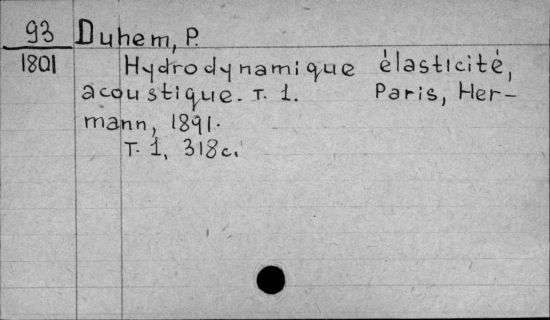 93 Duhem, P.
1801 Hydrodynamique élasticité,
acoustique. T. 1. Paris, Her-
mann, 1891.
T. 1, 318c.